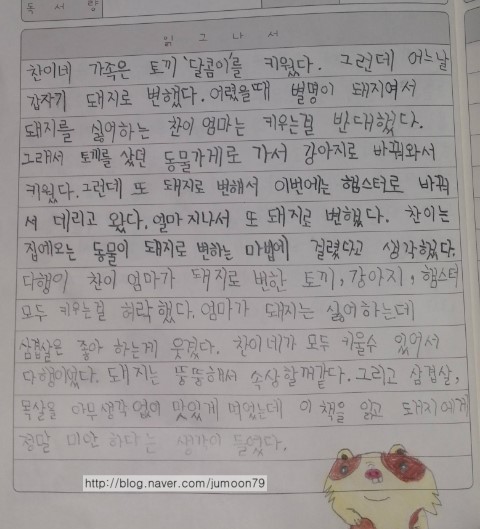 독 서 량
읽 고 나 서
찬이네 가족은 토끼 '달콤이'를 키웠다. 그런데 어느날
갑자기 돼지로 변했다. 어렸을때 별명이 돼지여서
돼지를 싫어하는 찬이 엄마는 키우는걸 반대했다.
그래서 토끼를 샀던 동물가게로 가서 강아지로 바꿔와서
키웠다. 그런데 또 돼지로 변해서 이번에는 햄스터로 바꿔
서 데리고 왔다. 얼마 지나서 또 돼지로 변했다. 찬이는
집에오는 동물이 돼지로 변하는 마법에 걸렸다고 생각했다.
다행이 찬이 엄마가 돼지로 변한 토끼, 강아지, 햄스터
모두 키우는걸 허락했다. 엄마가 돼지는 싫어하는데
삼겹살은 좋아 하는게 웃겼다. 찬이네가 모두 키울수 있어서
다행이였다. 돼지는 뚱뚱해서 속상할꺼같다. 그리고 삼겹살,
목살을 아무생각 없이 맛있게 먹었는데 이 책을 읽고 돼지에게
정말 미안 하다는 생각이 들었다.
http://blog.naver.com/jumoon79